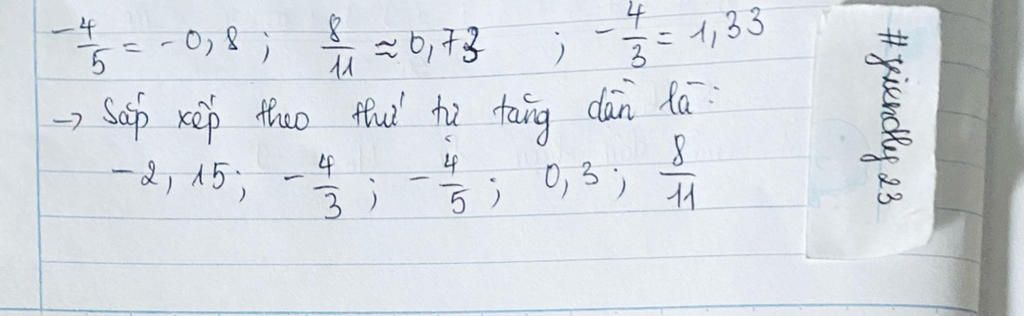 -4/5 = -0,8 ; 8/11 ≈ 0,73 ; -4/3 = 1,33
→ Sắp xếp theo thứ tự tăng dần là:
-2,15; -4/3; -4/5; 0,3; 8/11
#friendly23